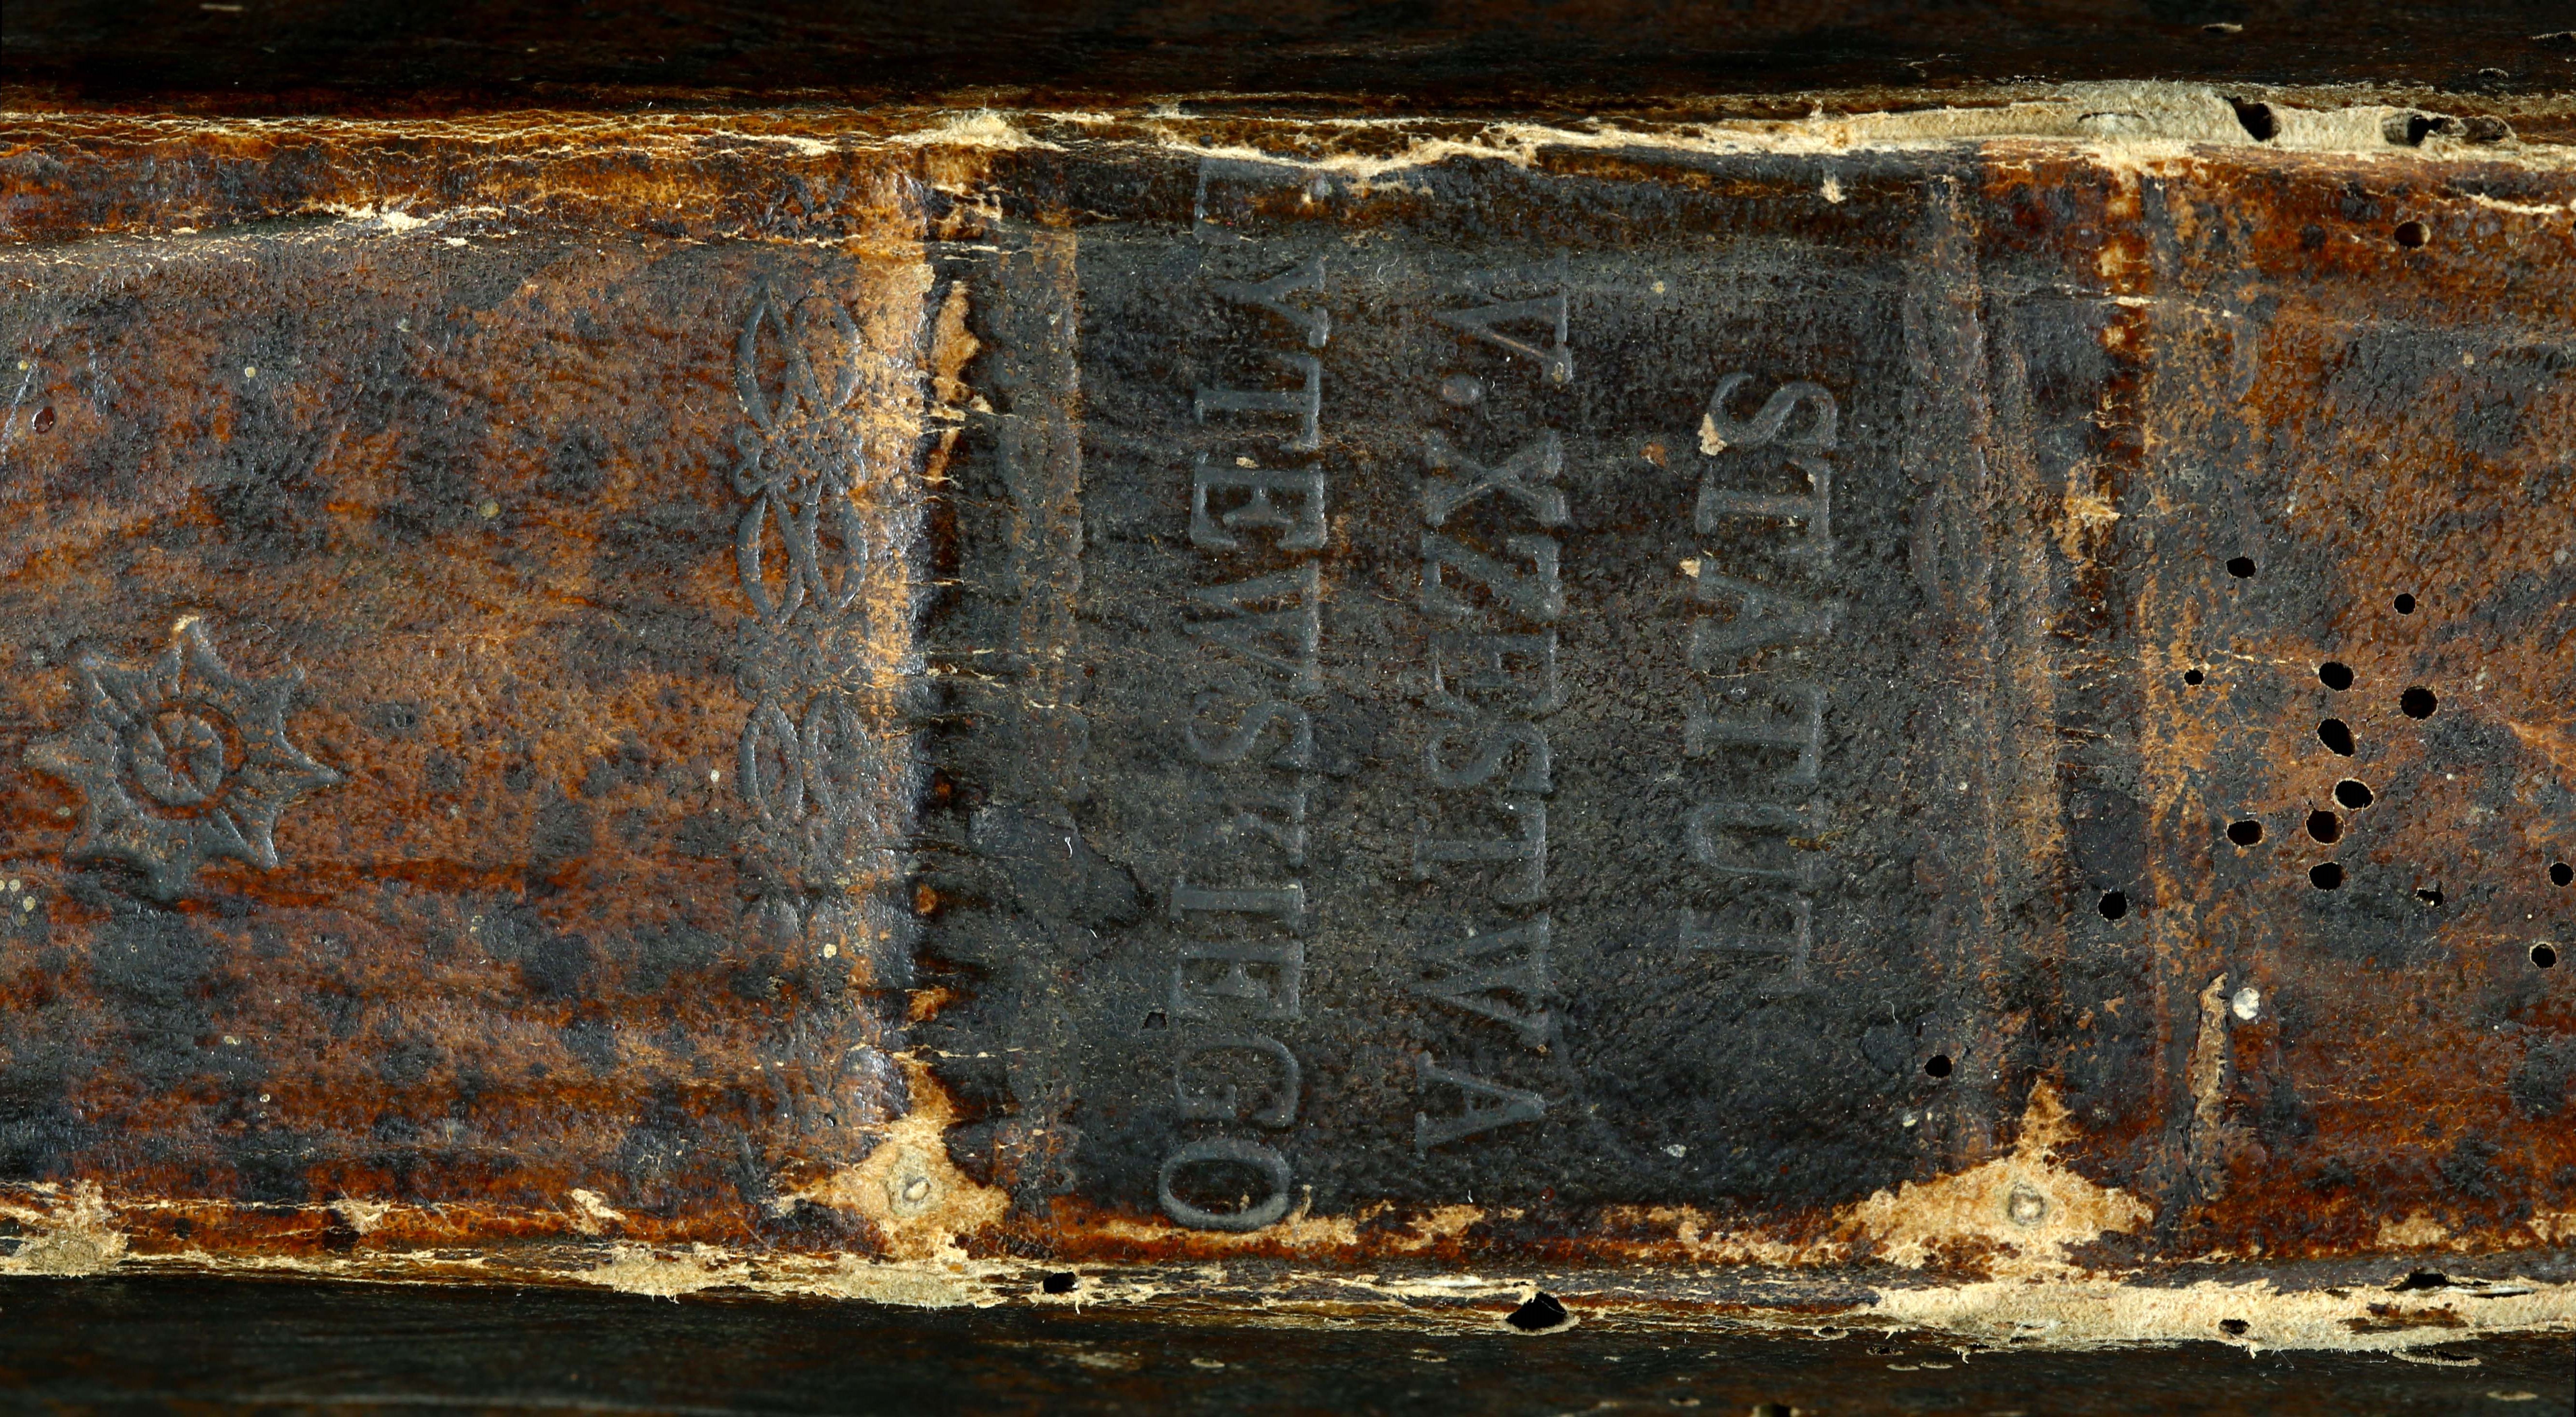 STATUT
V. XZĘSTWA
LYTEWSKIEGO